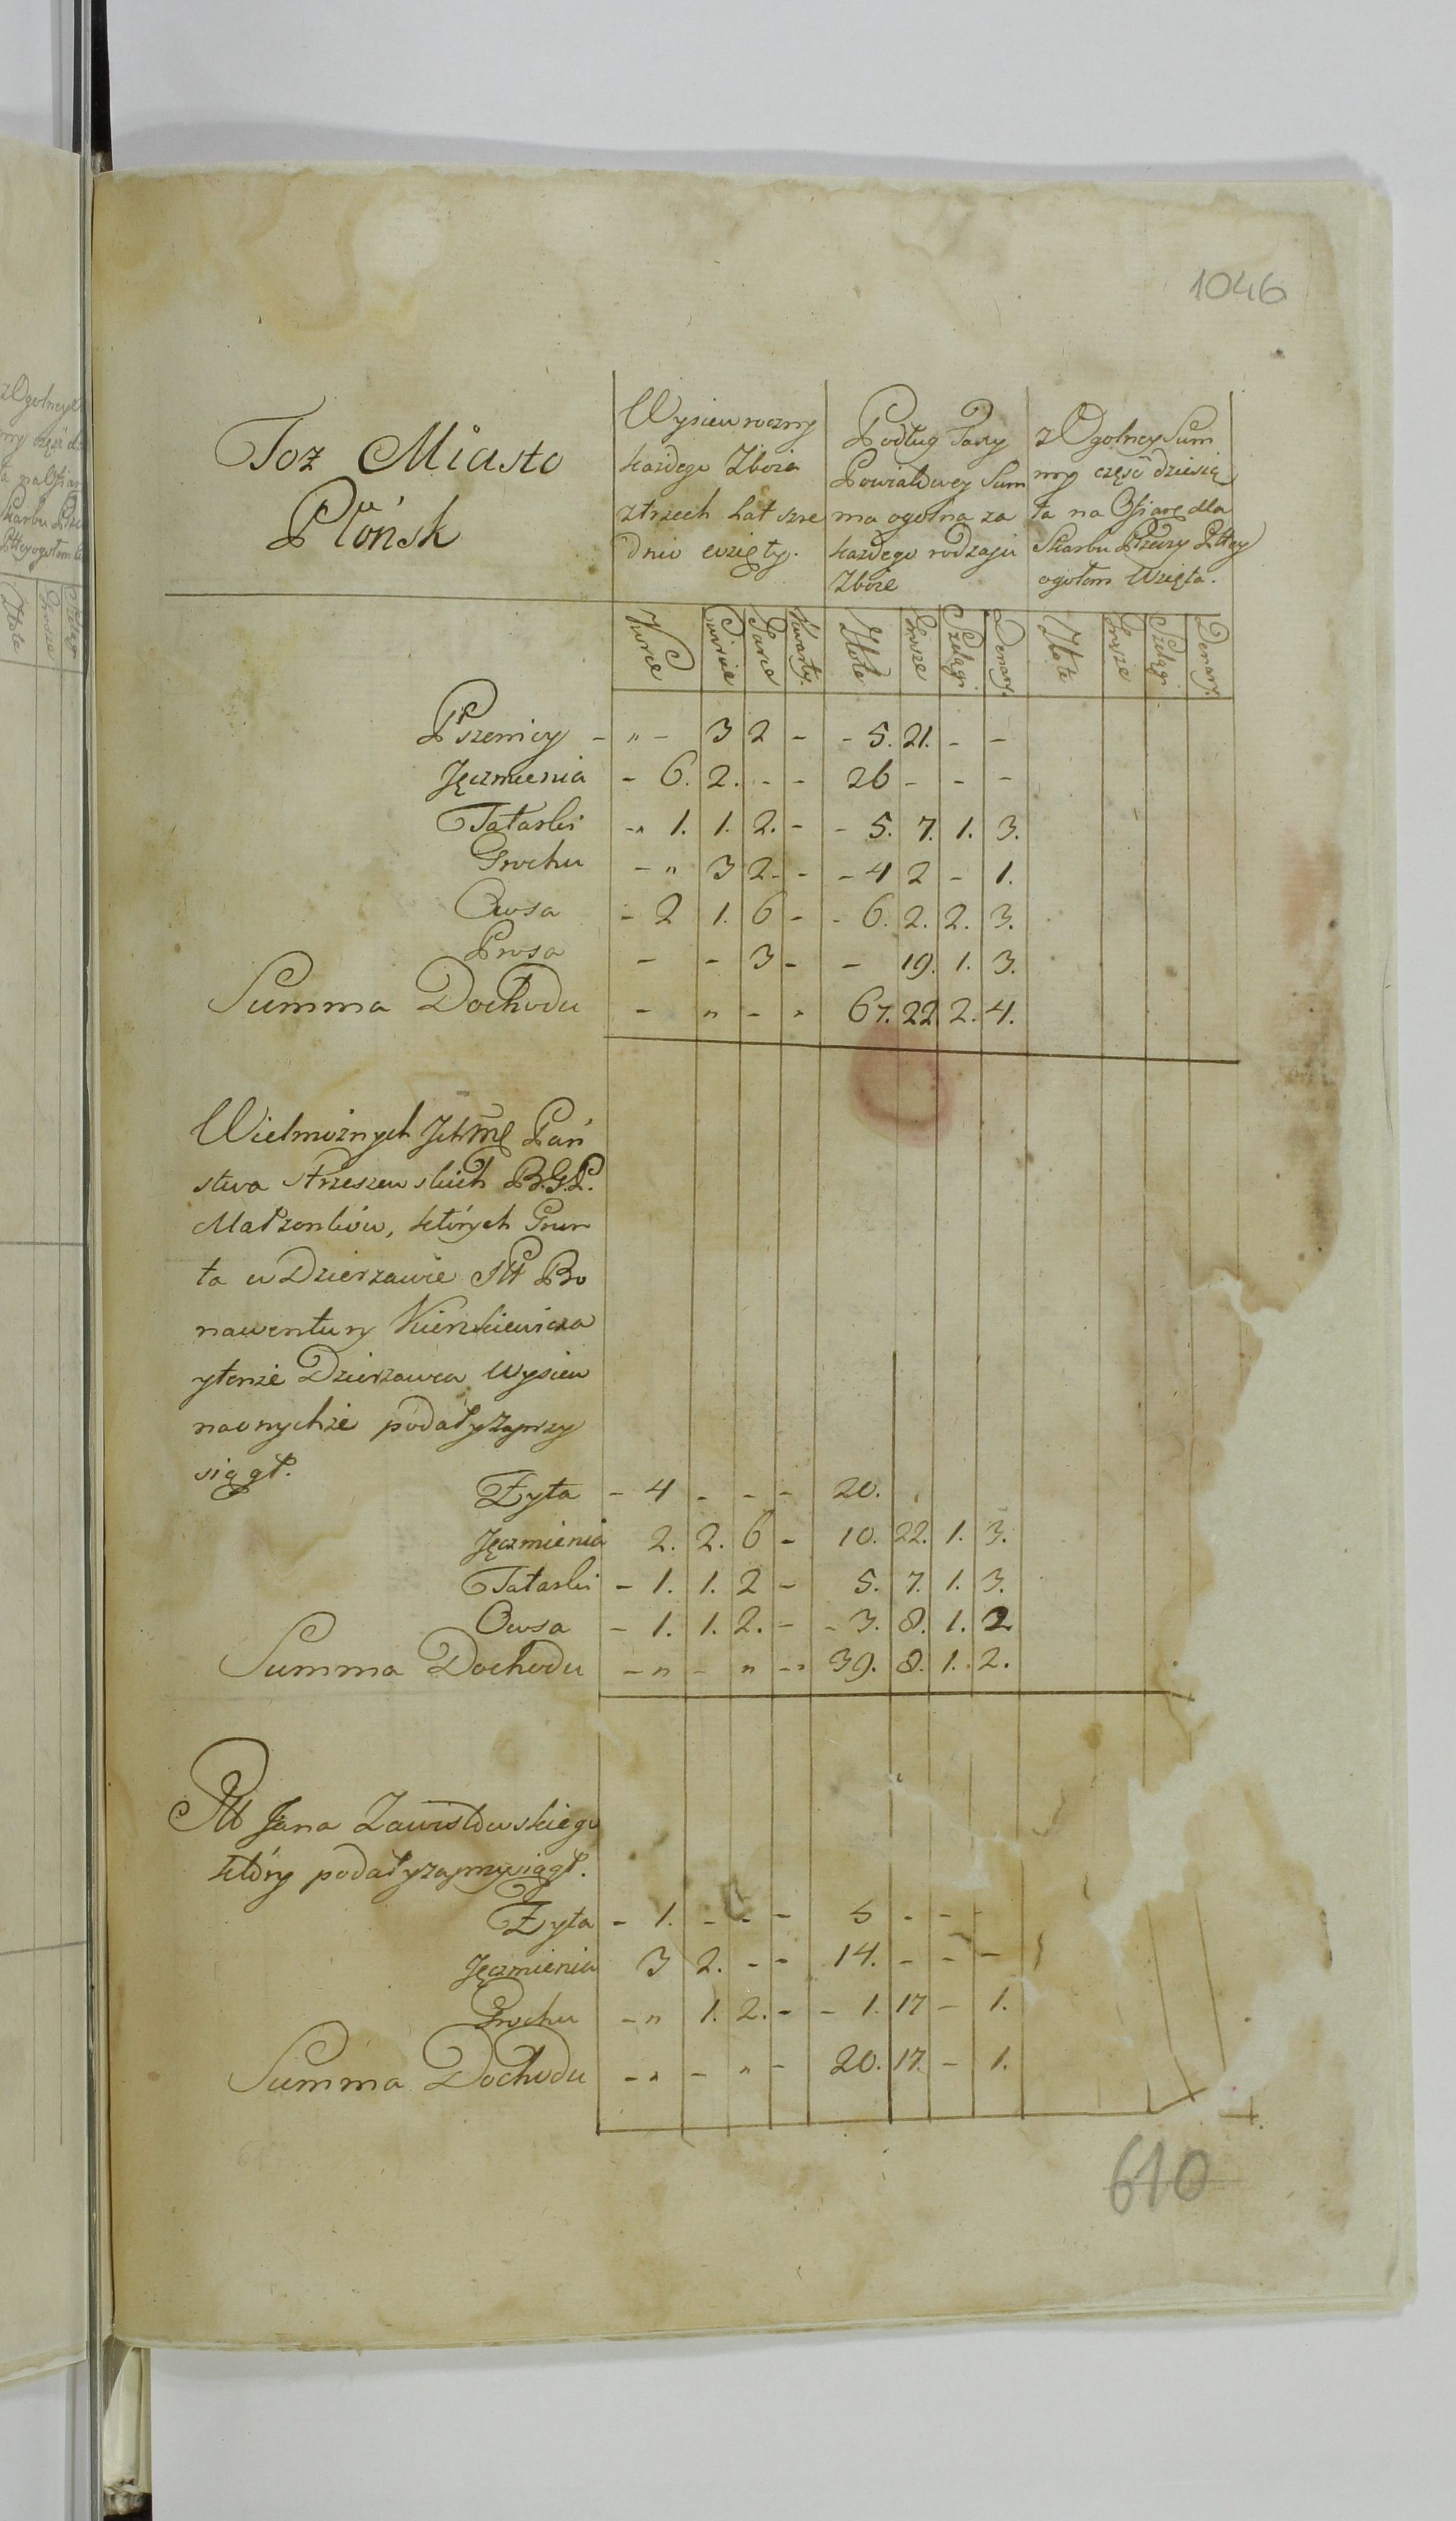 1046
Toż Miasto
Płońsk
Wysiew roczny
każdego Zboża
z trzech Lat szre
dnio wzięty.
Podług Taxy
Powiatowey Sum
ma ogolna za
każdego rodzaju
Zboże
z Ogolney Sum
my część dziesią
ta na Ofiarę dla
Skarbu Rzeczy Pttey
ogołem Wzięta.
Korce Cwircie Garce Kwarty. Złote Grosze Szelągi Denary. Złote Grosze Szelągi Denary.
Pszenicy - " - 3 2 - - 5. 21. - -
Jęczmienia - 6. 2. - - 26 - - -
Tatarki - " 1. 1. 2. - - 5. 7. 1. 3.
Grochu - " 3 2 - - - 4 2 - 1.
Owsa - 2 1. 6 - - 6. 2. 2. 3.
Prosa - - 3 - - 19. 1. 3.
Summa Dochodu - " - " 67. 22. 2. 4.
Wielmożnych Ichmę Pań
stwa Strzeszewskich B.G.P.
Małżonków, których Grun
ta w Dzierzawie Bo
nawentury
ytenże Dzierzawca Wysiew
na onychże podał y zaprzy
siągł.
Żyta - 4 - - - 20.
Jęczmienia 2. 2. 6 - 10. 22. 1. 3.
Tatarki - 1. 1. 2 - 5. 7. 1. 3.
Owsa - 1. 1. 2. - - 3. 8. 1. 2
Summa Dochodu - " - " - " 39. 8. 1. 2.
Jana Zawistowskiego
który podał y zaprzysiągł.
Żyta - 1. - - - 5 - - -
Jęczmienia 3 2. - - 14. - - -
Grochu - " 1. 2. - - 1. 17 - 1.
Summa Dochodu - " - " - 20. 17. - 1.
610